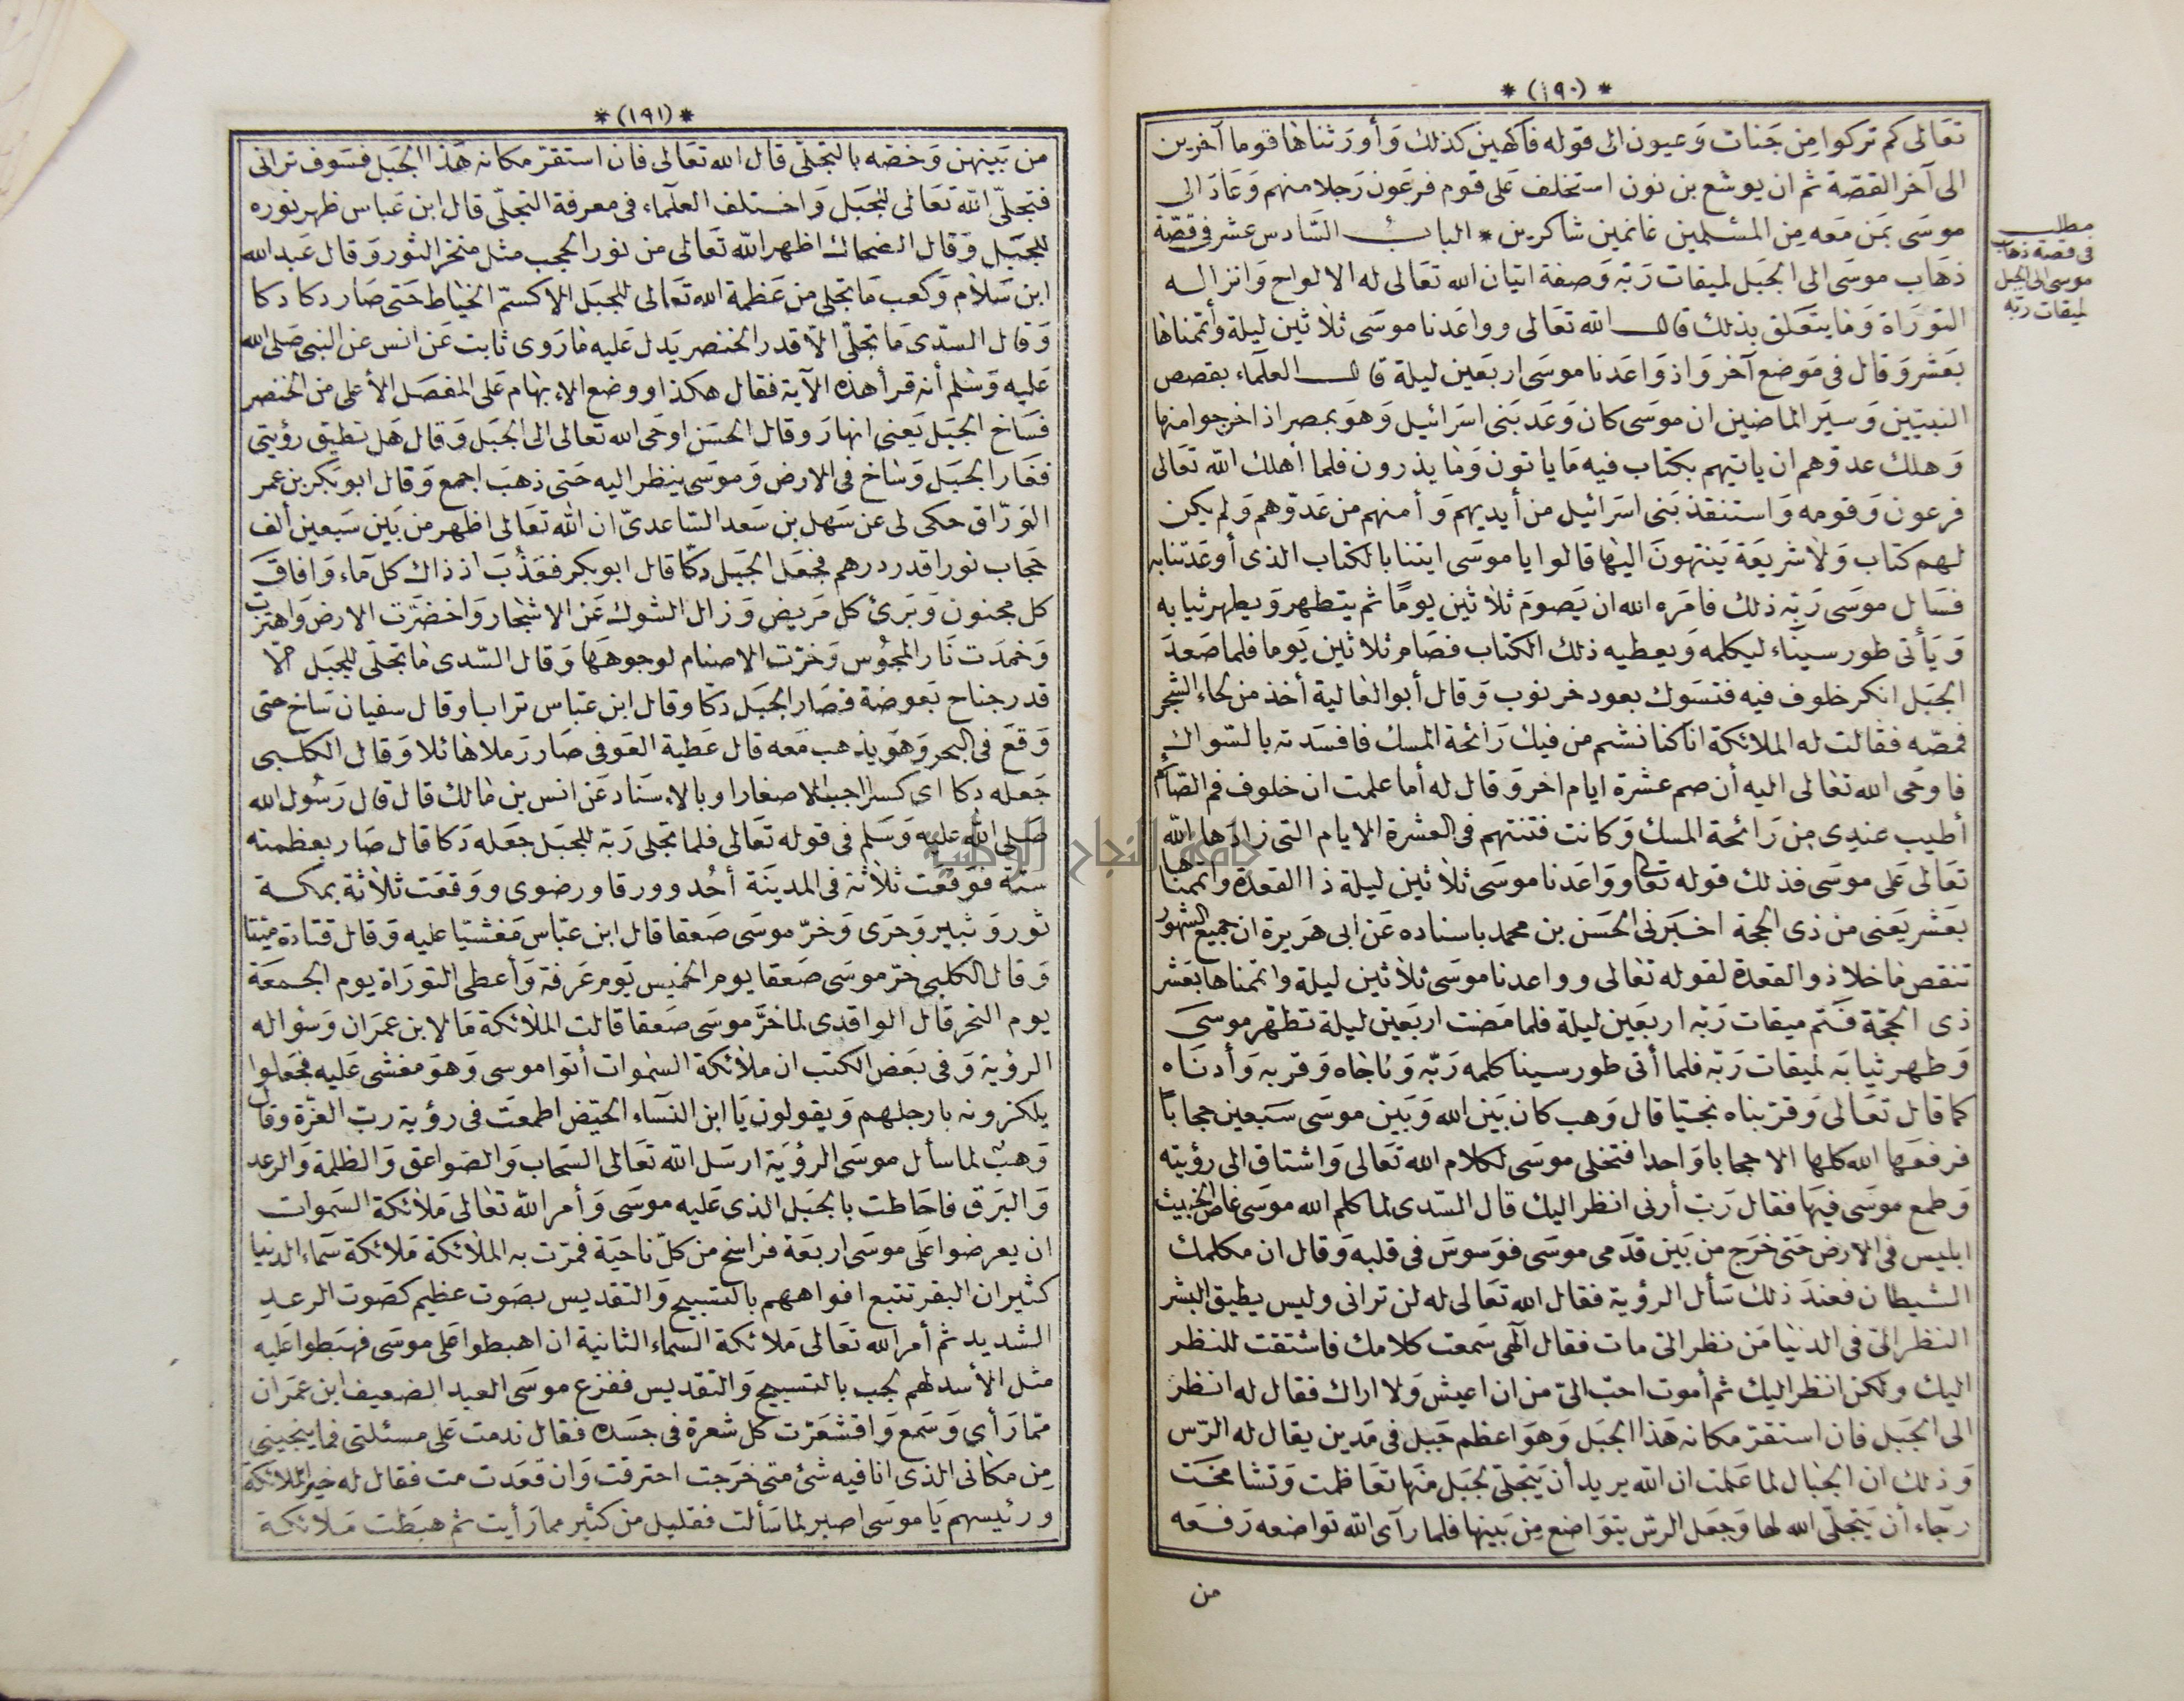 *(١٩٠)*
تعالى كم تركوا من جنات وعيون الى قوله فاكهين كذلك وأورثناها قوما آخرين
الى آخر القصة ثم ان يوشع بن نون استخلف على قوم فرعون رجلا منهم وعاد الى
موسى بمن معه من المسلمين غانمين شاكرين * الباب السادس عشر فى قصة
ذهاب موسى الى الجبل لميقات ربه وصفة اتيان الله تعالى له الالواح وانزاله
التوراة وما يتعلق بذلك قال الله تعالى وواعدنا موسى ثلاثين ليلة وأتممناها
بعشر وقال فى موضع آخر واذ واعدنا موسى اربعين ليلة قال العلماء بقصص
النبيين وسير الماضين ان موسى كان وعد بنى اسرائيل وهو بمصر اذا خرجوا منها
وهلك عدوهم ان ياتيهم بكتاب فيه ما ياتون وما يذرون فلما أهلك الله تعالى
فرعون وقومه واستنقذ بنى اسرائيل من أيديهم وأمنهم من عدوهم ولم يكن
لهم كتاب ولا شريعة ينتهون اليها قالوا يا موسى ايتنا بالكتاب الذى أوعدتنا به
فسال موسى ربه ذلك فامره الله ان يصوم ثلاثين يوما ثم يتطهر ويطهر ثيابه
ويأتى طور سيناء ليكلمه ويعطيه ذلك الكتاب فصام ثلاثين يوما فلما صعد
الجبل انكر خلوف فيه فتسوك بعود خرنوب وقال أبو العالية أخذ من لحاء الشجر
فمصه فقالت له الملائكة انا كنا نشم من فيك رائحة المسك فافسدته بالسواك
فاوحى الله تعالى اليه أن صم عشرة ايام اخر وقال له أما علمت ان خلوف فم الصائم
أطيب عندى من رائحة المسك وكانت فتنتهم فى العشرة الايام التى زادها الله
تعالى على موسى فذلك قوله تعالى وواعدنا موسى ثلاثين ليلة ذا القعدة وأتممناها
بعشر يعنى من ذى الحجة اخبرنى الحسن بن محمد باسناده عن ابى هريرة ان جميع الشهور
تنقص ما خلا ذو القعدة لقوله تعالى وواعدنا موسى ثلاثين ليلة واتممناها بعشر
ذى الحجة فتم ميقات ربه اربعين ليلة فلما مضت اربعين ليلة تطهر موسى
وطهر ثيابه لميقات ربه فلما أتى طور سينا كلمه ربه وناجاه وقربه وأدناه
كما قال تعالى وقربناه نجيا قال وهب كان بين الله وبين موسى سبعين حجابا
فرفعها الله كلها الا حجابا واحدا فتخلى موسى لكلام الله تعالى واشتاق الى رؤيته
وطمع موسى فيها فقال رب أرنى انظر اليك قال السدى لما كلم الله موسى غاص الخبيث
ابليس فى الارض حتى خرج من بين قدمى موسى فوسوس فى قلبه وقال ان مكلمك
الشيطان فعند ذلك سأل الرؤية فقال الله تعالى له لن ترانى وليس يطيق البشر
النظر الىّ فى الدنيا من نظر الىّ مات فقال الهى سمعت كلامك فاشتقت للنظر
اليك ولكن انظر اليك ثم أموت احب الىّ من ان اعيش ولا اراك فقال له انظر
الى الجبل فان استقر مكانه هذا الجبل وهو اعظم جبل فى مدين يقال له الرس
وذلك ان الجبال لما علمت ان الله يريد أن يتجلى لجبل منها تعاظمت وتشامخت
رجاء أن يتجلى الله لها وجعل الرس يتواضع من بينها فلما رآى الله تواضعه رفعه
من
مطلب
فى قصة ذهاب
موسى الى الجبل
لميقات ربه
*(١٩١)*
من بينهن وخصه بالتجلى قال الله تعالى فان استقر مكانه هذا الجبل فسوف ترانى
فتجلى الله تعالى للجبل واختلف العلماء فى معرفة التجلى قال ابن عباس ظهر نوره
للجبل وقال الضحاك اظهر الله تعالى من نور الحجب مثل منخر الثور وقال عبد الله
ابن سلام وكعب ما تجلى من عظمة الله تعالى للجبل الا كسم الخياط حتى صار دكا دكا
وقال السدى ما تجلى الا قدر الخنصر يدل عليه ما روى ثابت عن انس عن النبى صلى الله
عليه وسلم أنه قرأ هذه الآية فقال هكذا ووضع الابهام على المفصل الأعلى من الخنصر
فساخ الجبل يعنى انهار وقال الحسن اوحى الله تعالى الى الجبل وقال هل تطيق رؤيتى
فغار الجبل وساخ فى الارض وموسى ينظر اليه حتى ذهب اجمع وقال ابو بكر بن عمر
الوراق حكى لى عن سهل بن سعد الساعدى ان الله تعالى اظهر من بين سبعين ألف
حجاب نورا قدر درهم فجعل الجبل دكا قال ابو بكر فعذب اذ ذاك كل ماء وافاق
كل مجنون وبرئ كل مريض وزال الشوك عن الاشجار واخضرت الارض واهتزت
وخمدت نار المجوس وخرت الاصنام لوجوهها وقال السدى ما تجلى للجبل الا
قدر جناح بعوضة فصار الجبل دكا وقال ابن عباس ترابا وقال سفيان ساخ حتى
وقع فى البحر وهو يذهب معه قال عطية العوفى صار رملا هائلا وقال الكلبى
جعله دكا اى كسرا جبالا صغارا وبالاسناد عن انس بن مالك قال قال رسول الله
صلى الله عليه وسلم فى قوله تعالى فلما تجلى ربه للجبل جعله دكا قال صار بعظمته
ستة فوقعت ثلاثة فى المدينة أحد وورقا ورضوى ووقعت ثلاثة بمكة
ثور وثبير وحرى وخر موسى صعقا قال ابن عباس مغشيا عليه وقال قتادة ميتا
وقال الكلبى خر موسى صعقا يوم الخميس يوم عرفة وأعطى التوراة يوم الجمعة
يوم النحر قال الواقدى لما خر موسى صعقا قالت الملائكة ما لابن عمران وسواله
الرؤية وفى بعض الكتب ان ملائكة السموات أتوا موسى وهو مغشى عليه فجعلوا
يلكزونه بارجلهم ويقولون يا ابن النساء الحيض اطمعت فى رؤية رب العزة وقال
وهب لما سأل موسى الرؤية ارسل الله تعالى السحاب والصواعق والظلمة والرعد
والبرق فاحاطت بالجبل الذى عليه موسى وأمر الله تعالى ملائكة السموات
ان يعرضوا على موسى اربعة فراسخ من كل ناحية فمرت به الملائكة ملائكة سماء الدنيا
كثيران البقر تتبع افواههم بالتسبيح والتقديس بصوت عظيم كصوت الرعد
الشديد ثم أمر الله تعالى ملائكة السماء الثانية ان اهبطوا على موسى فهبطوا عليه
مثل الأسد لهم لجب بالتسبيح والتقديس ففزع موسى العبد الضعيف ابن عمران
مما رأى وسمع واقشعرت كل شعرة فى جسده فقال ندمت على مسئلتى فما ينجينى
من مكانى الذى انا فيه شئ متى خرجت احترقت وان قعدت مت فقال له خير الملائكة
ورئيسهم يا موسى اصبر لما سألت فقليل من كثير مما رأيت ثم هبطت ملائكة
جامعة النجاح الوطنية